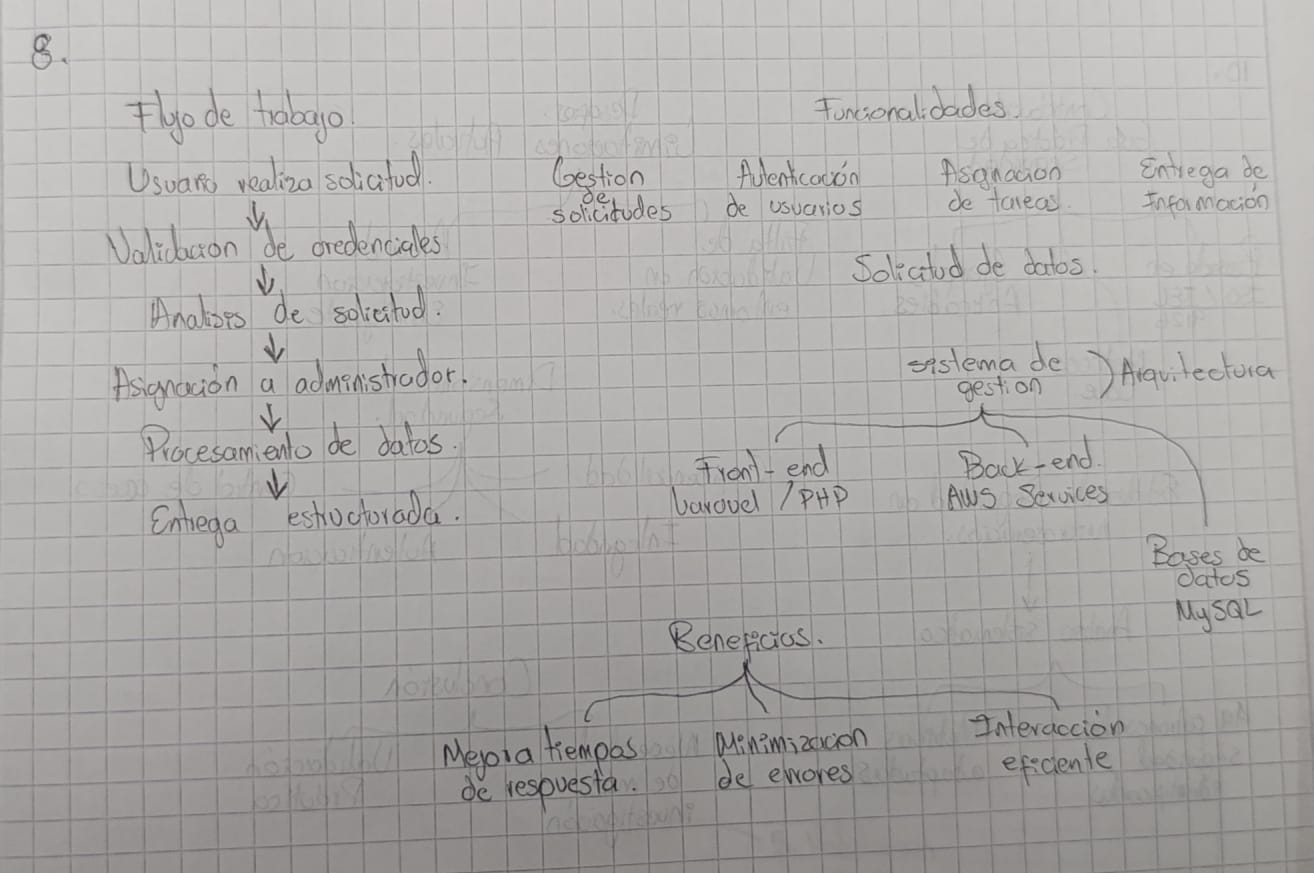 8.
Flujo de trabajo.
Usuario realiza solicitud.
↓
Validacion de credenciales
↓
Analisis de solicitud.
↓
Asignación a administrador.
↓
Procesamiento de datos.
↓
Entrega estructurada.
Funcionalidades.
Gestion
de
solicitudes
Autenticación
de usuarios
Asignacion
de tareas.
Entrega de
Información
Solicitud de datos.
sistema de
gestion
) Arquitectura
Front-end
Laravel / PHP
Back-end.
AWS Services
Bases de
datos
MySQL
Beneficios.
Mejora tiempos
de respuesta.
Minimizacion
de errores
Interacción
eficiente